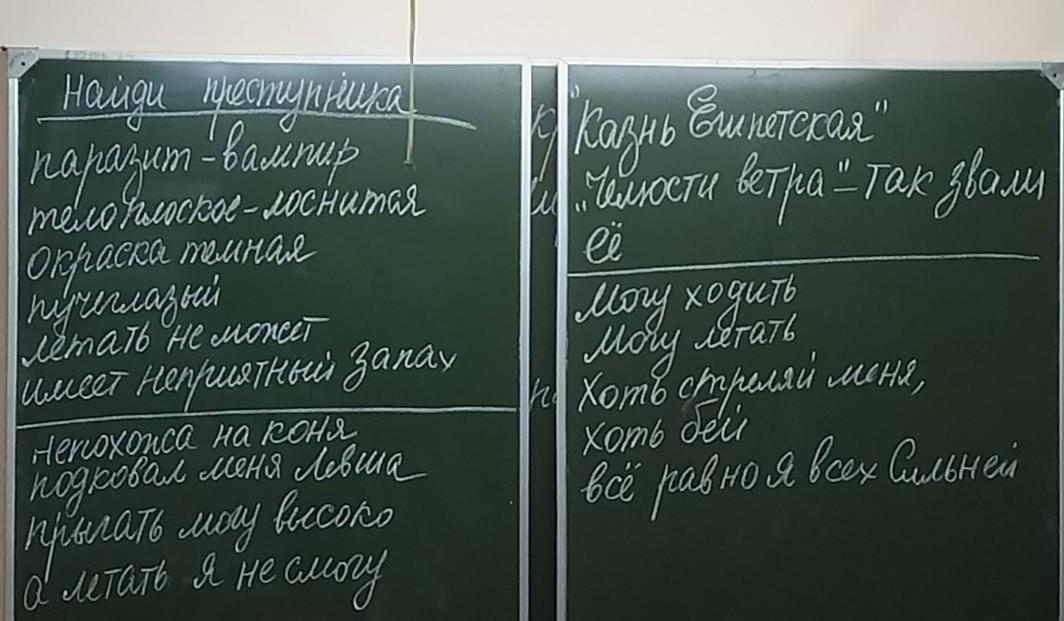 Найди преступника
паразит-вампир
тело плоское-лоснится
окраска темная
пучеглазый
летать не может
имеет неприятный запах
непохожа на коня
подковал меня Левша
прыгать могу высоко
а летать я не смогу
"Казнь Египетская"
„Челюсти ветра"-так звали
её
Могу ходить
Могу летать
Хоть стреляй меня,
хоть бей
всё равно я всех Сильней